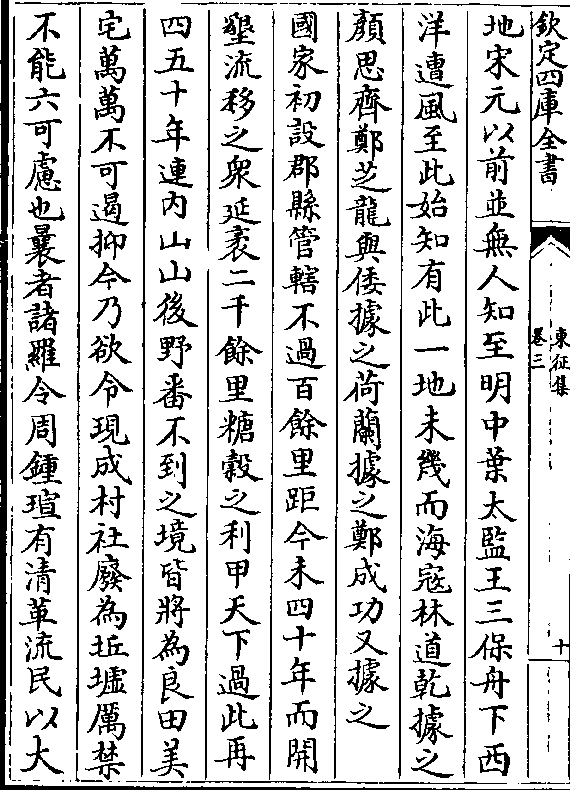 欽定四庫全書
東征集
卷三
十
地宋元以前並無人知至明中葉太監王三保舟下西
洋遭風至此始知有此一地未幾而海寇林道乾據之
顏思齊鄭芝龍與倭據之荷蘭據之鄭成功又據之
國家初設郡縣管轄不過百餘里距今未四十年而開
墾流移之衆延袤二千餘里糖穀之利甲天下過此再
四五十年連內山山後野番不到之境皆將為良田美
宅萬萬不可遏抑今乃欲令現成村社廢為坵墟厲禁
不能六可慮也曩者諸羅令周鍾瑄有清革流民以大